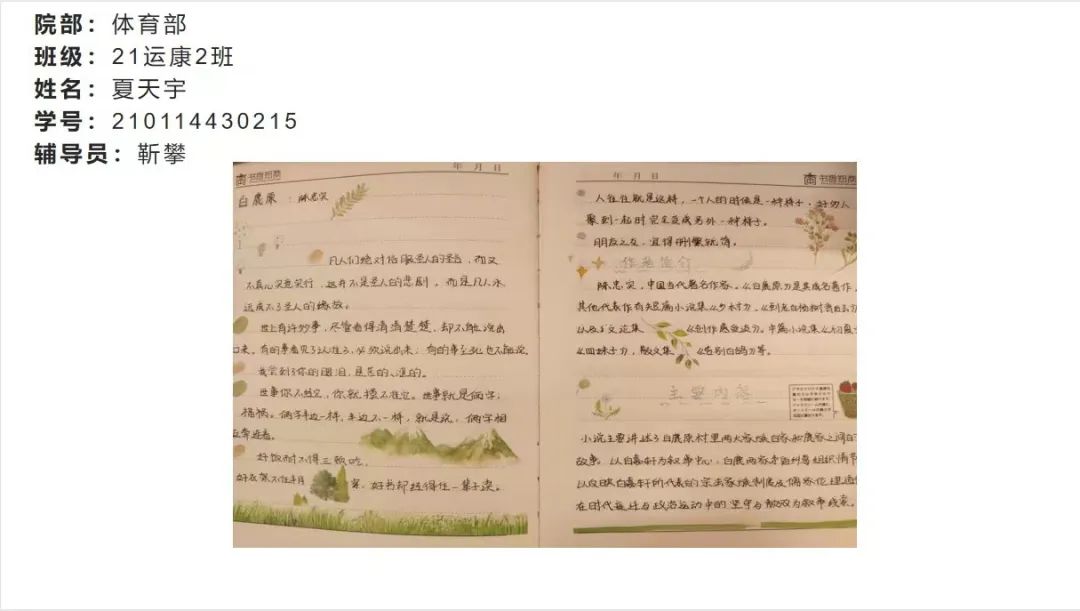 院部：体育部
班级：21运康2班
姓名：夏天宇
学号：210114430215
辅导员：靳攀
年 月 日
白鹿原：陈忠实
凡人们绝对信服圣人的圣言，而又
不真心实意实行，这并不是圣人的悲剧，而是凡人永
远成不了圣人的缘故。
世上有许多事，尽管看得清清楚楚，却不能说出
口来。有的事看见了认准了，必须说出来；有的事至死也不能说。
我尝到了你的眼泪，是苦的、涩的。
世事你不经它，你就摸不准它。世事就是俩字：
福祸。俩字半边一样，半边不一样，就是说，俩字相
互牵连着。
好饭耐不得三顿吃，
好衣架不住半月穿，好书却经得住一辈子读。
年 月 日
人往往就是这样，一个人的时候是一种样子，好多人
聚到一起时完全变成另外一种样子。
朋友之交，宜得删繁就简。
作者简介
陈忠实，中国当代著名作家。《白鹿原》是其成名著作，
其他代表作有短篇小说集《乡村》、《到老白杨树背后去》
以及文论集《创作感受谈》。中篇小说集《初夏》
《四妹子》，散文集《告别白鸽》等。
主要内容
小说主要讲述了白鹿原村里两大家族白家和鹿家之间的
故事。以白嘉轩为叙事中心，白鹿两家矛盾纠葛组织情节
以反映白嘉轩所代表的宗法家族制度及儒家伦理道德
在时代变迁与政治运动中的坚守与颓败为叙事线索。